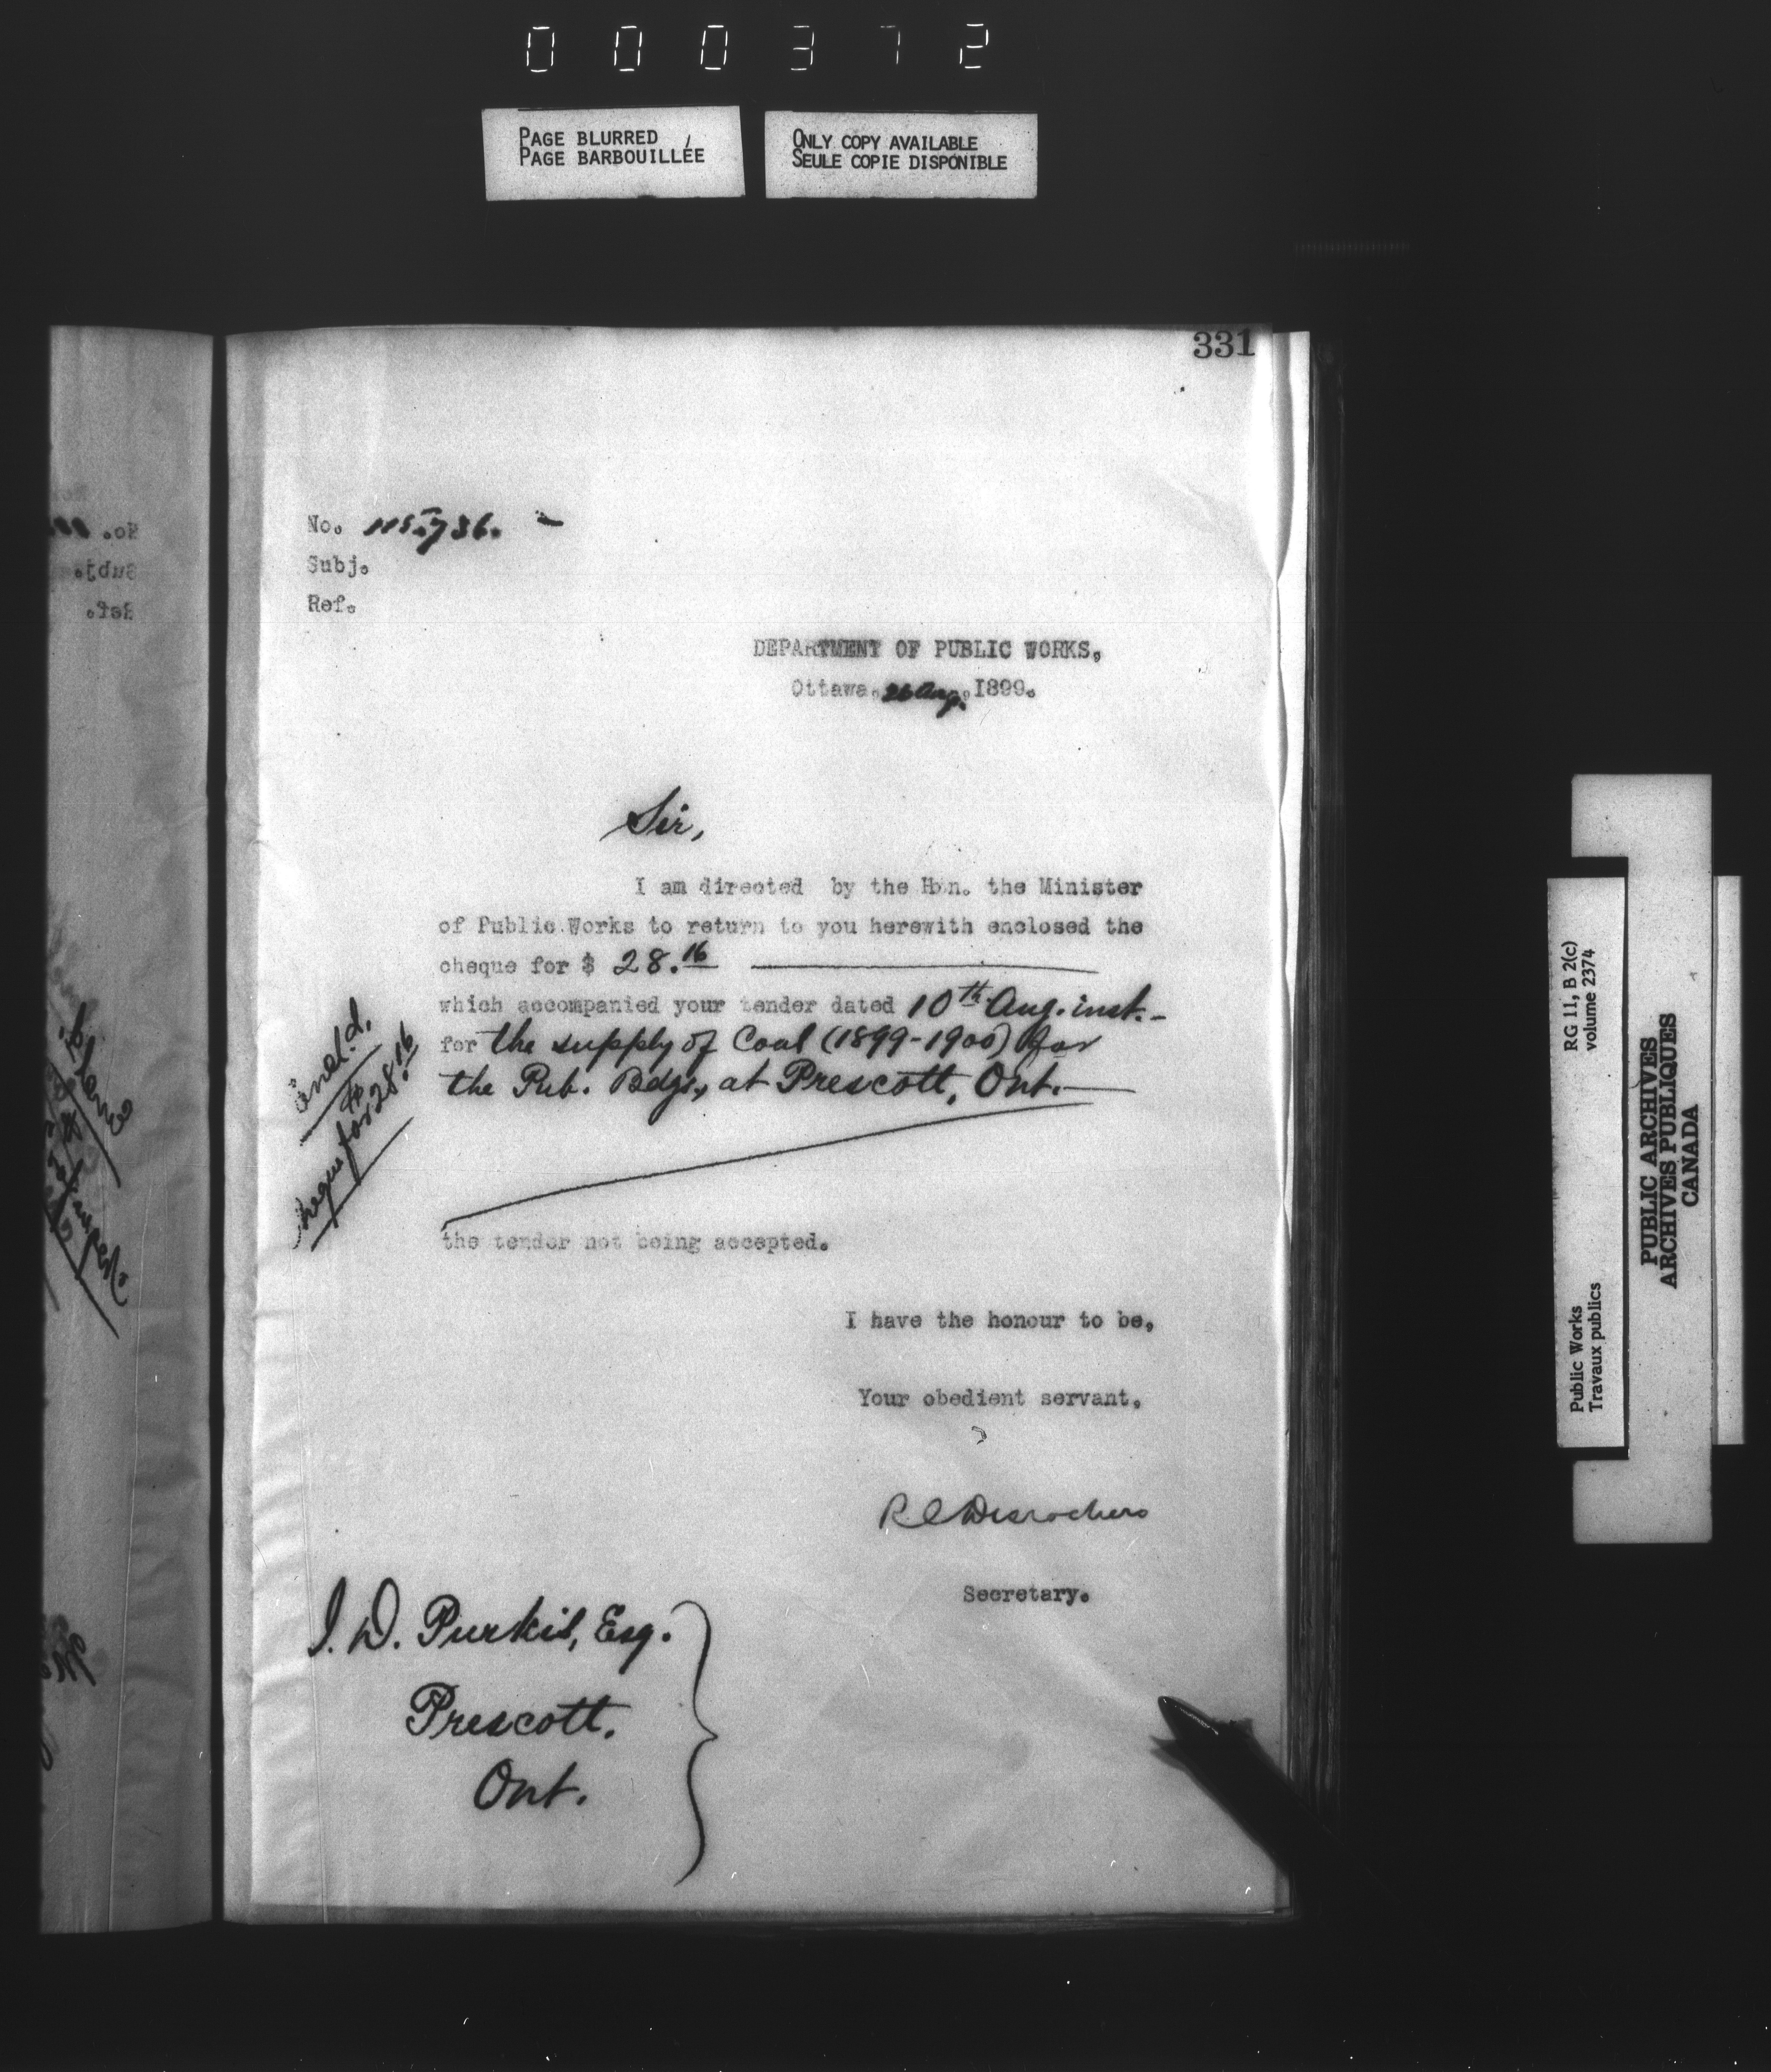 000372
PAGE BLURRED
PAGE BARBOUILLÉE
ONLY COPY AVAILABLE
SEULE COPIE DISPONIBLE
331
No. 115,736. -
Subj.
Ref.
DEPARTMENT OF PUBLIC WORKS.
Ottawa. 26 Aug. 1899.
Sir,
I am directed by the Hon. the Minister
of Public Works to return to you herewith enclosed the
cheque for $ 28.16
which accompanied your tender dated 10th Aug. inst.-
for the supply of Coal (1899-1900) for
the Pub. Bdgs., at Prescott, Ont.
Encl.d.
cheque for $28.16
the tender not being accepted.
I have the honour to be,
Your obedient servant.
R C Desrochers
Secretary.
J. D. Purkis, Esq.
Prescott.
Ont.
RG 11, B 2(c)
volume 2374
Public Works
Travaux publics
PUBLIC ARCHIVES
ARCHIVES PUBLIQUES
CANADA